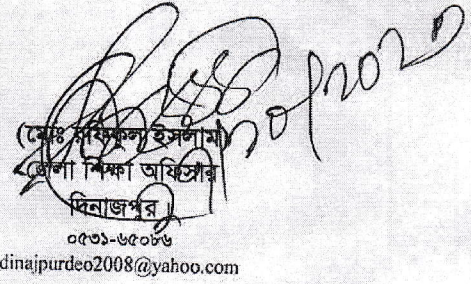 (মোঃ রফিকুল ইসলাম)
জেলা শিক্ষা অফিসার
দিনাজপুর।
০৫৩১-৬৫০৮৬
dinajpurdeo2008@yahoo.com